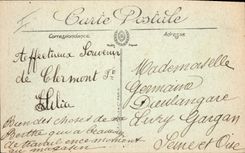 Carte Postale
Correspondance
Adresse
Affectueux Souvenir
de Clermont Fd
Bien des choses de
Berthe qui a beaucoup
de travail en ce moment
au magasin
Mademoiselle
Germaine
Livry Gargan
Seine et Oise